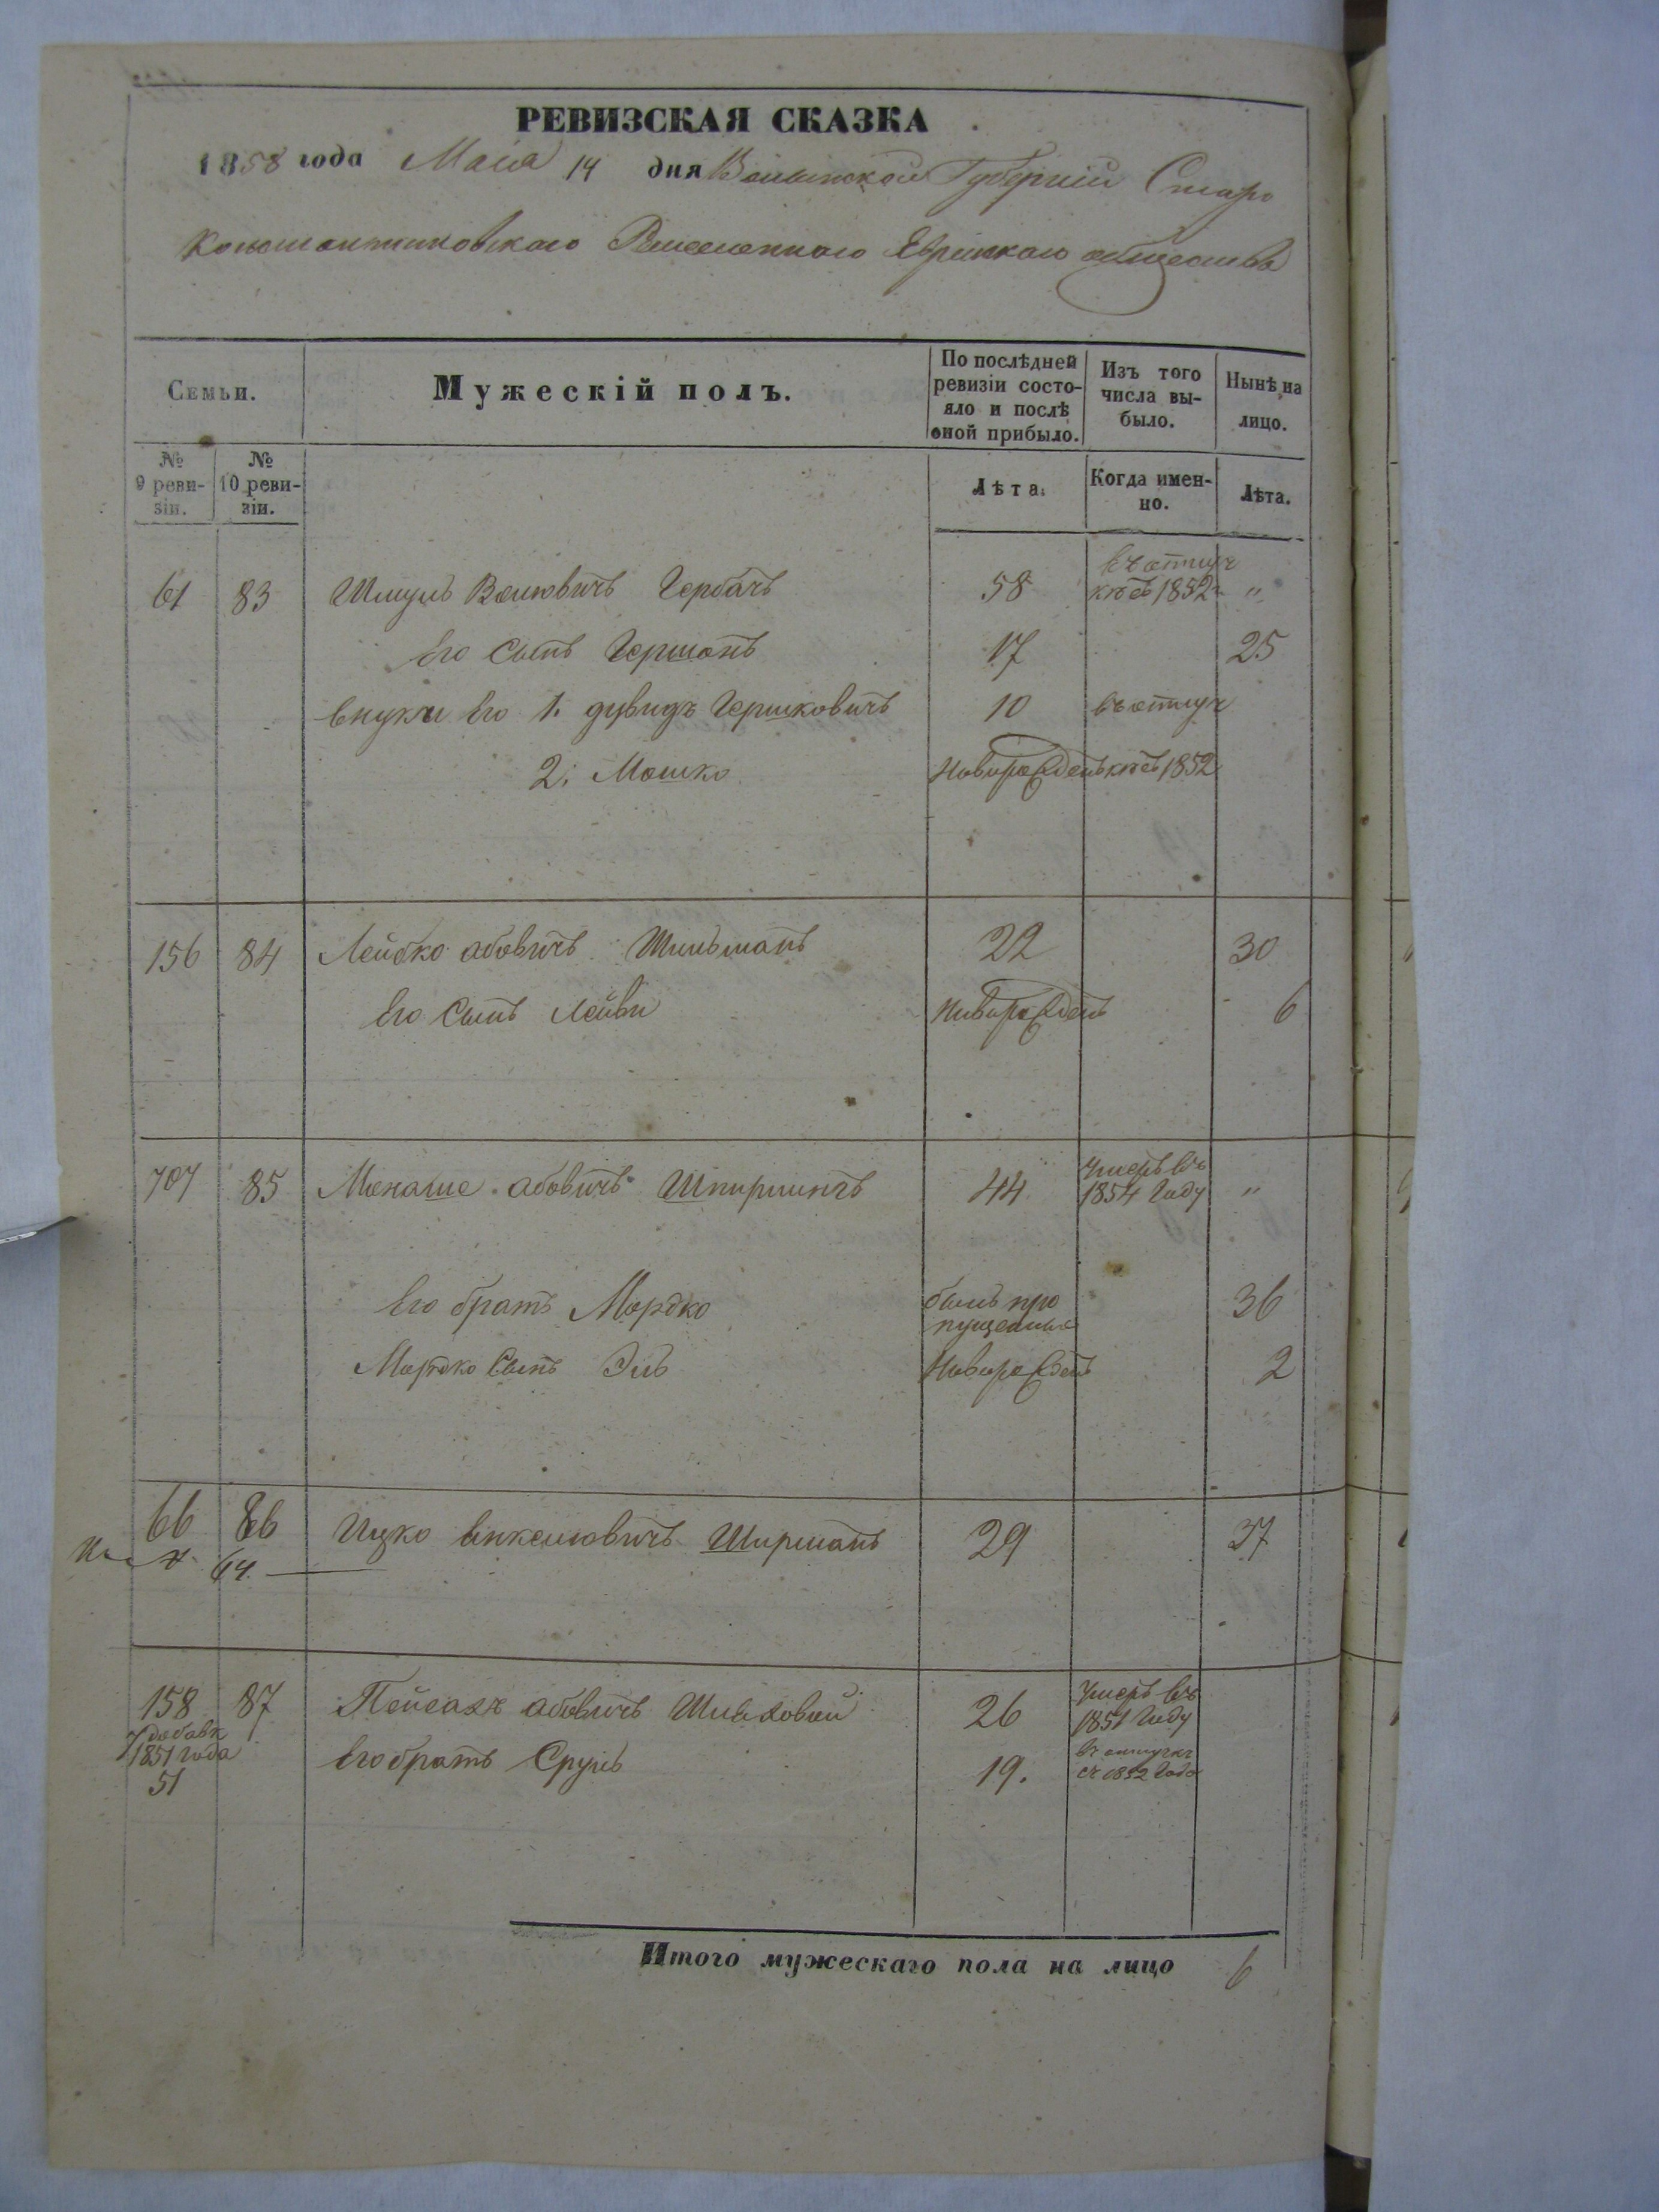 РЕВИЗСКАЯ СКАЗКА
1858 года Маія 14 дня Волынской Губерніи Старо
Константиновскаго Еврейскаго общества
Семьи.
Мужескій полъ.
По послѣдней ревизіи состо-
яло и послѣ
оной прибыло.
Изъ того
числа вы-
было.
Нынѣ на
лицо.
№
9 реви-
зіи.
№
10 реви-
зіи.
Лѣта.
Когда имен-
но.
Лѣта.
61 83 Шмуль Волковичъ Гербачъ 58 въ отлуч
кѣ съ 1852 "
Его Сынъ Гершонъ 17 25
внуки Его 1. дувидъ Гершковичъ 10 въ отлуч
2. Мошко Новорожденъ кѣ съ 1852
156 84 Лейбко абовичъ Шильманъ 22 30
Его Сынъ Лейви Новорожденъ 6
707 85 Менаше абовичъ 44 Умеръ въ
1854 Году "
Его братъ Мордко былъ про
пущенъ 36
Мордко Сынъ Эль Новорожденъ 2
66 86 Ицко Ширманъ 29 37
64
158 87 Пейсахъ абовичъ 26 Умеръ въ
1851 Году
добавк
1851 года
51
Его братъ Сруль 19. въ отлучкѣ
съ 1852 Года
Итого мужескаго пола на лицо 6